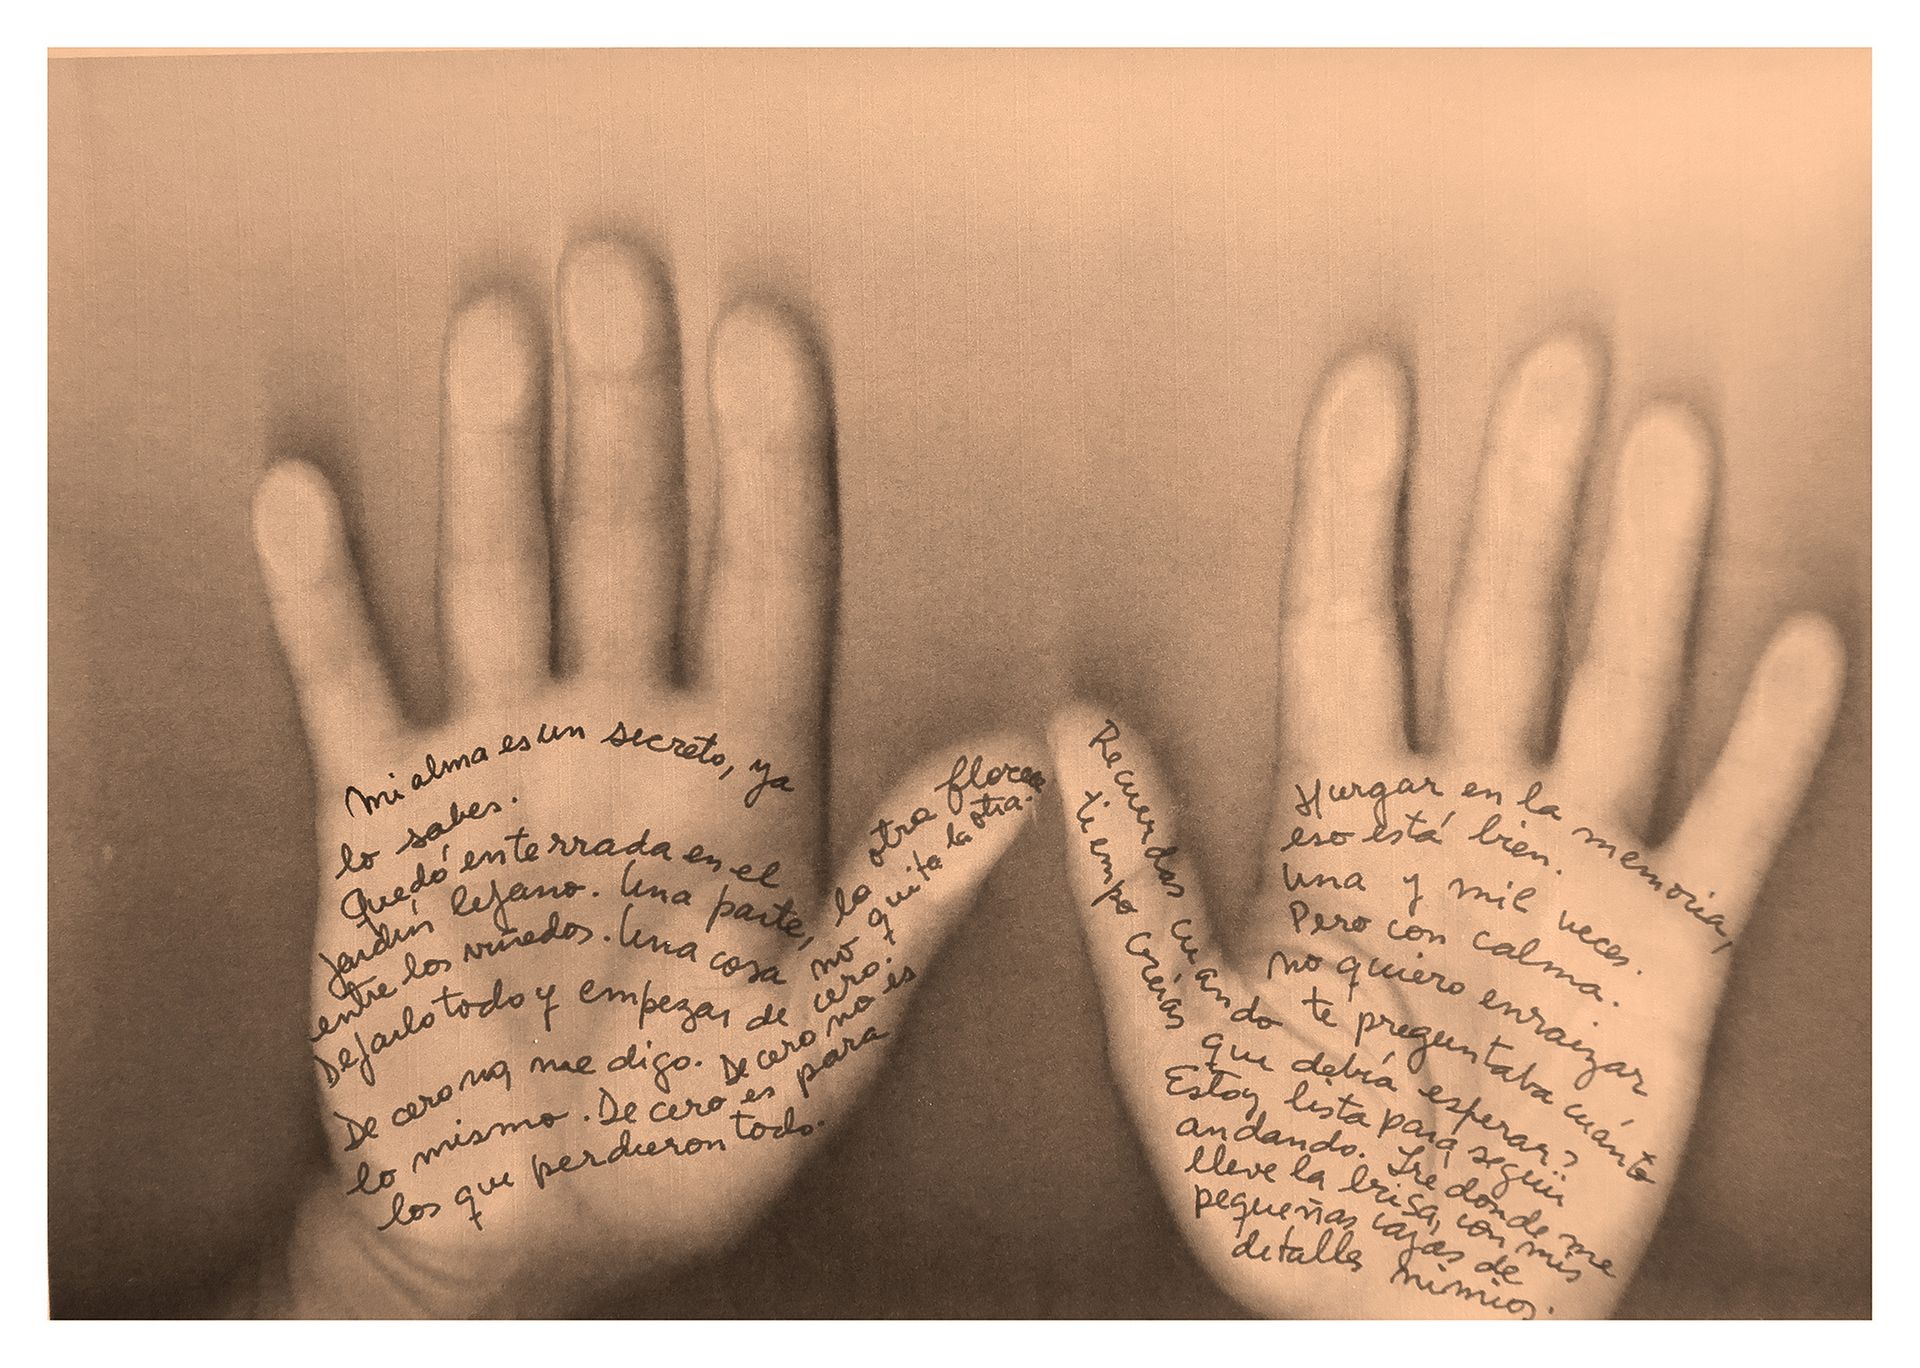 Mi alma es un secreto, ya
lo sabes.
Quedó enterrada en el
jardín lejano. Una parte, la otra florece
entre los viñedos. Una cosa no quita la otra.
Dejarlo todo y empezar de cero.
De cero no, me digo. De cero no es
lo mismo. De cero es para
los que perdieron todo.
Hurgar en la memoria,
eso está bien.
Una y mil veces.
Pero con calma.
no quiero enraizar
Recuerdas cuando te preguntaba cuánto
tiempo creías que debía esperar?
Estoy lista para seguir
andando. Iré donde me
lleve la brisa, con mis
pequeñas cajas de
detalles nimios.